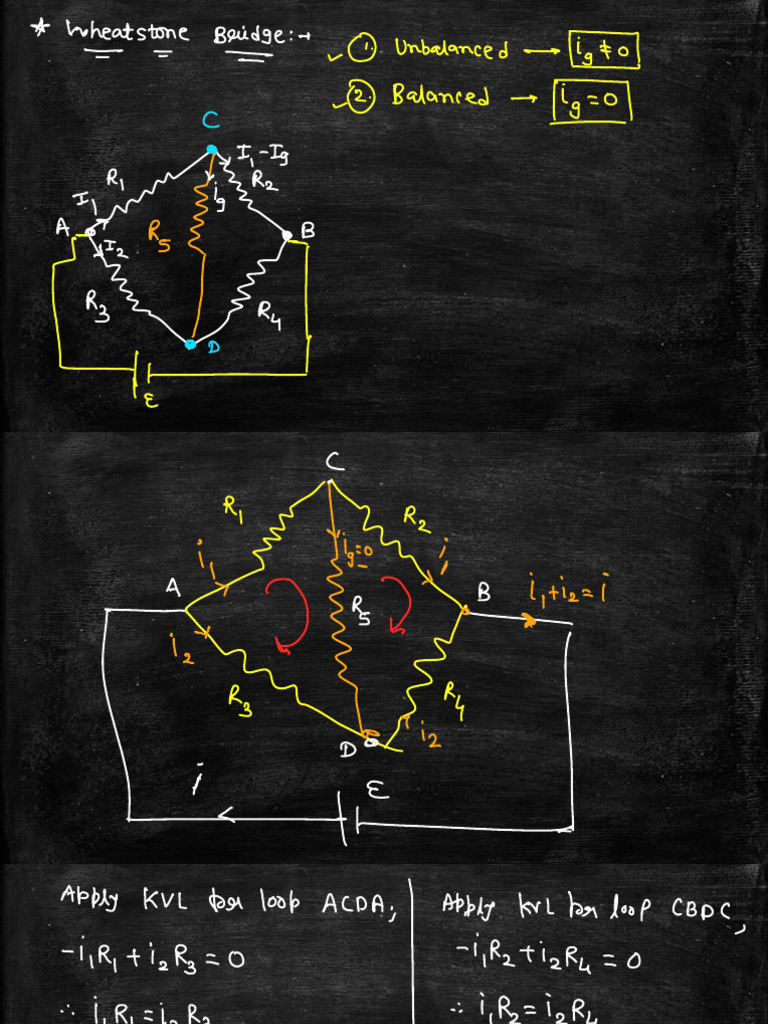 * Wheatstone Bridge:→
① Unbalanced → ig ≠ 0
② Balanced → ig = 0
C
I1-Ig
R1
R2
I1
ig
A
B
R5
I2
R3
R4
D
ε
C
R1
R2
i1
ig=0
i1
A
B
i1+i2=i
R5
i2
R3
R4
D
i2
i
ε
Apply KVL for loop ACDA;
-i1R1 + i2R3 = 0
∴ i1R1 = i2R3
Apply KVL for loop CBDC,
-i1R2 + i2R4 = 0
∴ i1R2 = i2R4